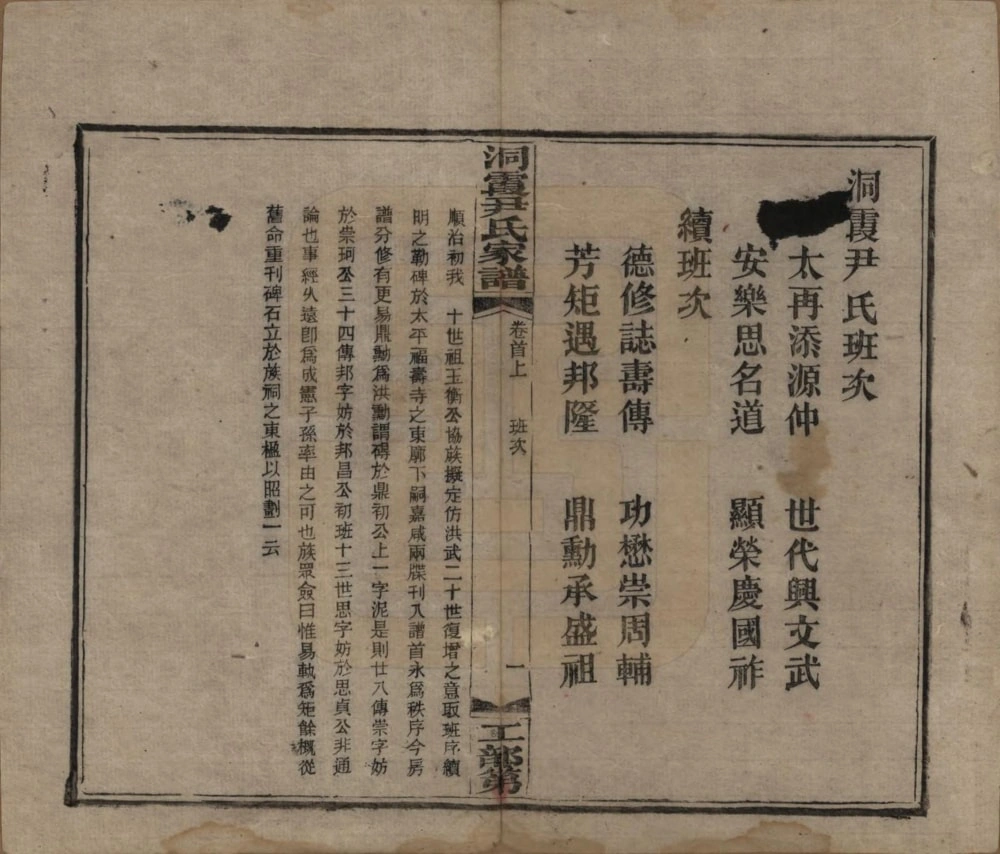 洞霞尹氏班次
太再添源仲　世代興文武
安樂思名道　顯榮慶國祚
續班次
德修誌壽傳　功懋崇周輔
芳矩遇邦隆　鼎勳承盛祖
洞霞尹氏家譜　卷首上　班次　一　工部第
順治初我　十世祖玉衡公協族擬定仿洪武二十世復增之意取班序續
明之勒碑於太平福壽寺之東廓下嗣嘉咸兩牒刊入譜首永爲秩序今房
譜分修有更易鼎勳爲洪勳謂礙於鼎初公上一字泥是則廿八傳崇字妨
於崇珂公三十四傳邦字妨於邦昌公初班十三世思字妨於思貞公非通
論也事經久遠卽爲成憲子孫率由之可也族眾僉曰惟易軌爲矩餘概從
舊命重刊碑石立於族祠之東楹以昭劃一云